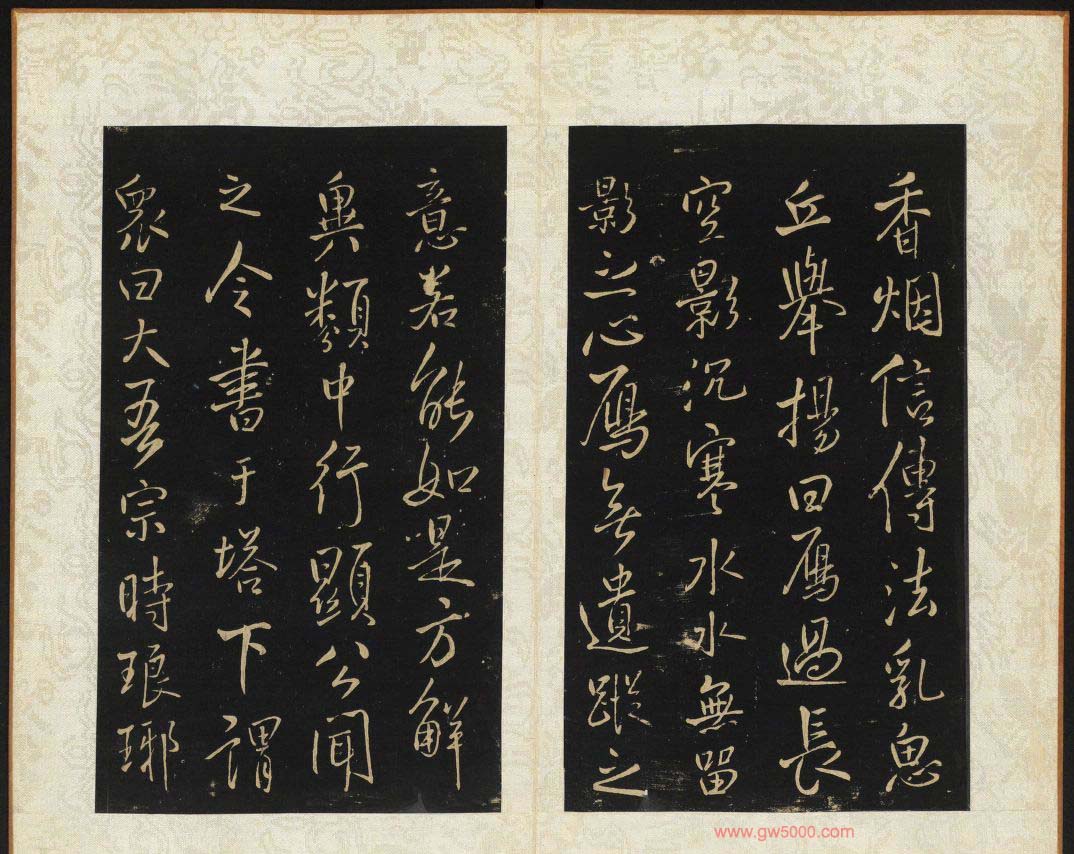 香烟信傳法乳虎
丘舉揚曰鴈過長
空影沉寒水水無留
影之心鴈無遺蹤之
意若能如是方解
異類中行顯公聞
之令書于塔下謂
衆曰大吾宗時琅琊
www.gw5000.com